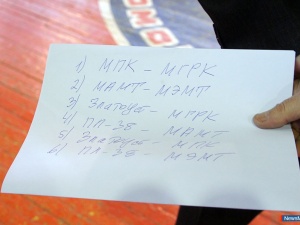 ОМО
1) МПК – МГРК
2) МАМТ – МЭМТ
3) Златоуст – МГРК
4) ПЛ-38 – МАМТ
5) Златоуст – МПК
6) ПЛ-38 – МЭМТ